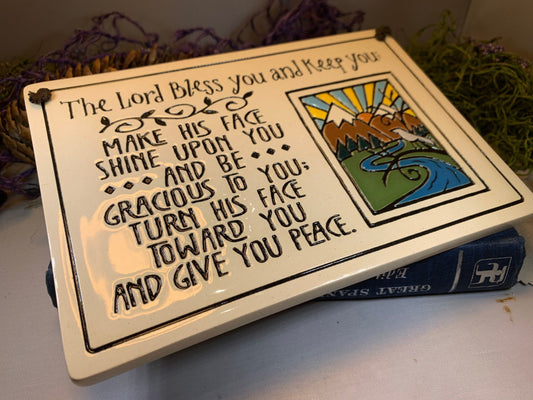 The Lord Bless you and Keep you;
MAKE HIS FACE
SHINE UPON YOU
AND BE
GRACIOUS TO YOU;
TURN HIS FACE
TOWARD YOU
AND GIVE YOU PEACE.
GREAT SPAN